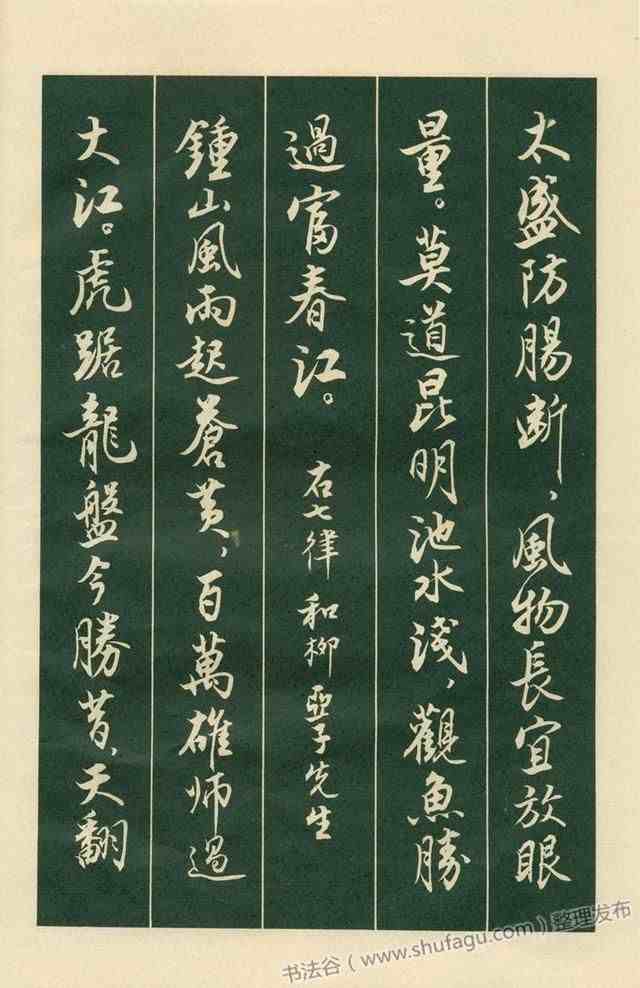 太盛防腸斷，風物長宜放眼
量。莫道昆明池水淺，觀魚勝
過富春江。 右七律 和柳亞子先生
鍾山風雨起蒼黄，百萬雄师過
大江。虎踞龍盤今勝昔，天翻
书法谷（www.shufagu.com）整理发布